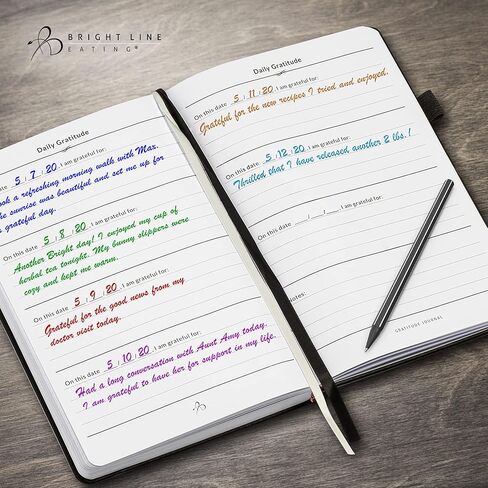 BRIGHT LINE
EATING®
Daily Gratitude
On this date 5 / 7 / 20 I am grateful for:
ook a refreshing morning walk with Max.
he sunrise was beautiful and set me up for
a grateful day.
On this date 5 / 8 / 20 I am grateful for:
Another Bright day! I enjoyed my cup of
herbal tea tonight. My bunny slippers were
cozy and kept me warm.
On this date 5 / 9 / 20 I am grateful for:
Grateful for the good news from my
doctor visit today.
On this date 5 / 10 / 20 I am grateful for:
Had a long conversation with Aunt Amy today.
I am grateful to have her for support in my life.
Daily Gratitude
On this date 5 / 11 / 20 I am grateful for:
Grateful for the new recipes I tried and enjoyed.
On this date 5 / 12 / 20 I am grateful for:
Thrilled that I have released another 2 lbs.!
On this date __/__/__ I am grateful for:
Notes:
GRATITUDE JOURNAL